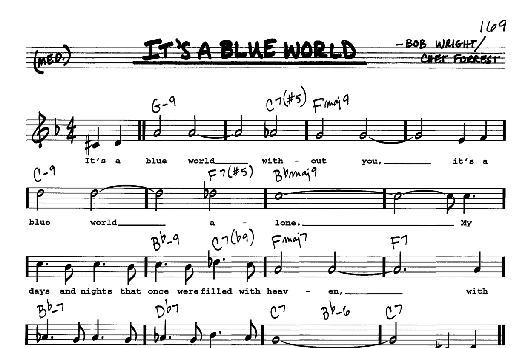 169
(MED.) IT'S A BLUE WORLD – BOB WRIGHT/
CHET FORREST
G-9 C7(#5) Fmaj9
It's a blue world with - out you, it's a
C-9 F7(#5) Bbmaj9
blue world a - lone. My
Bb-9 C7(b9) Fmaj7 F7
days and nights that once were filled with heav - en, with
Bb-7 Db7 C7 Bb-6 C7